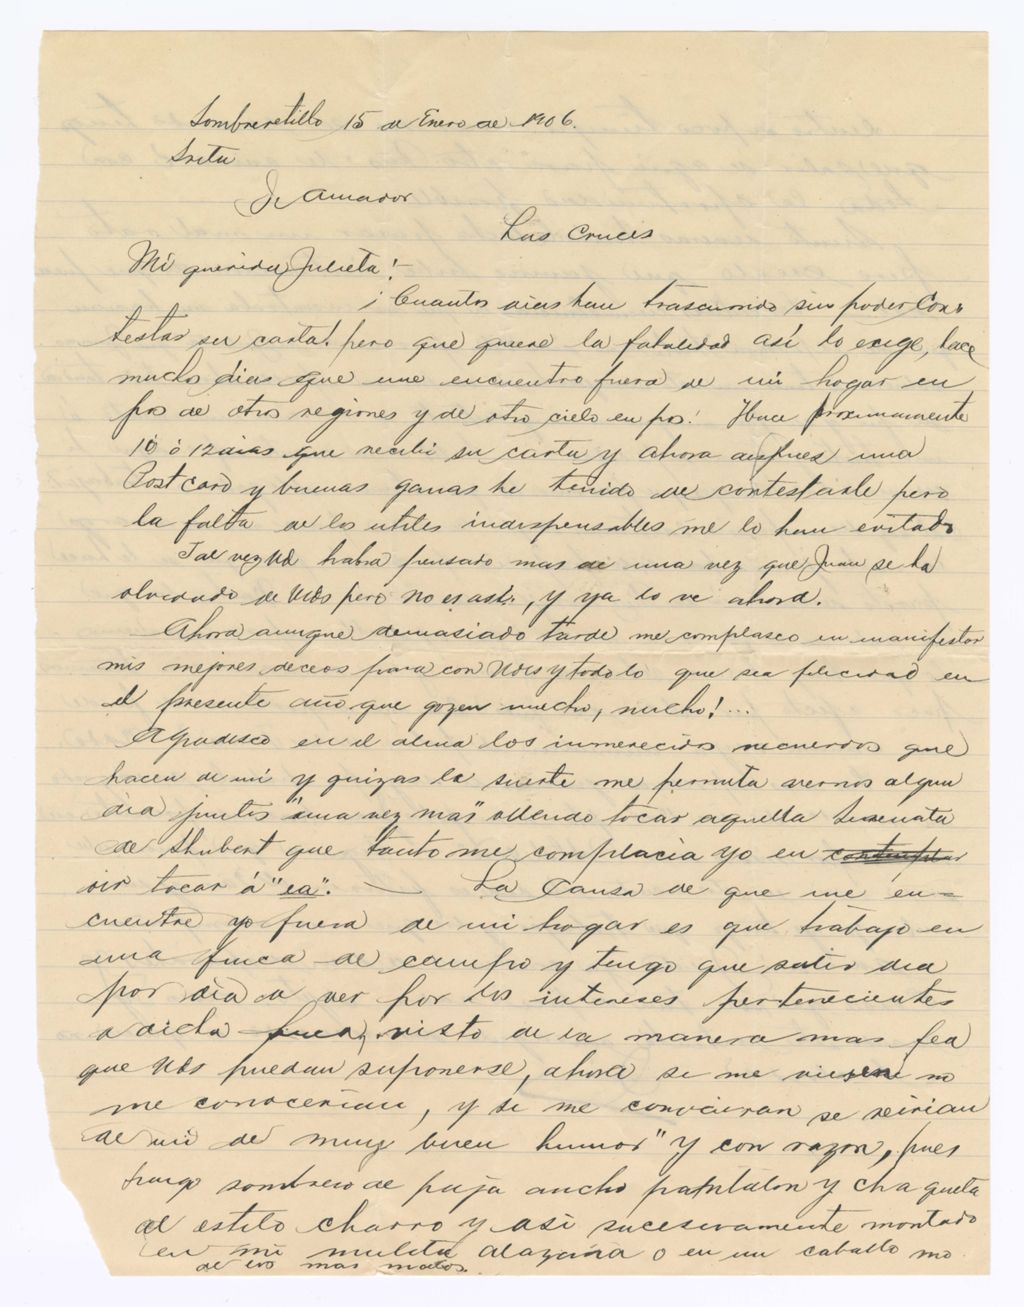 Sombreretillo 15 de Enero de 1906.
Srita
J. Amador
Las Cruces
Mi querida Julieta!-
¡Cuantos dias han trascurrido sin poder Con-
testar su carta! pero que quiere la fatalidad así lo exige, hace
mucho dias que me encuentro fuera de mi hogar en
pos de otros regiones y de otro cielo en pos! Hace proximamente
10 ó 12 dias que recibi su carta y ahora despues una
Post card y buenas ganas he tenido de contestarle pero
la falta de los utiles indispensables me lo han evitado
Tal vez Ud habra pensado mas de una vez que Juan se ha
olvidado de Uds pero no es asi, y ya lo ve ahora.
Ahora aunque demasiado tarde me complasco en manifestar
mis mejores deceos para con Udes y todo lo que sea felicidad en
el presente año que gozen mucho, mucho!...
Agradesco en el alma los inmerecidos recuerdos que
hacen de mi y quizas la suerte me permita vernos algun
dia juntos "una vez mas" oyendo tocar aquella Serenata
de Shubert que tanto me complacia yo en contemplar
oir tocar á "ea". — La Causa de que me en-
cuentre yo fuera de mi hogar es que trabajo en
una finca de campo y tengo que salir dia
por dia a ver por los intereses pertenecientes
a dicha finca, visto de la manera mas fea
que Uds puedan suponerse, ahora si me viesen no
me conocerian, y si me conocieran se reirian
de mi de muy buen humor" y con razon, pues
traigo sombrero de paja ancho pantalon y chaqueta
al estilo charro y asi sucesivamente montado
en mi mulita alazana o en un caballo mo
de los mas malos.